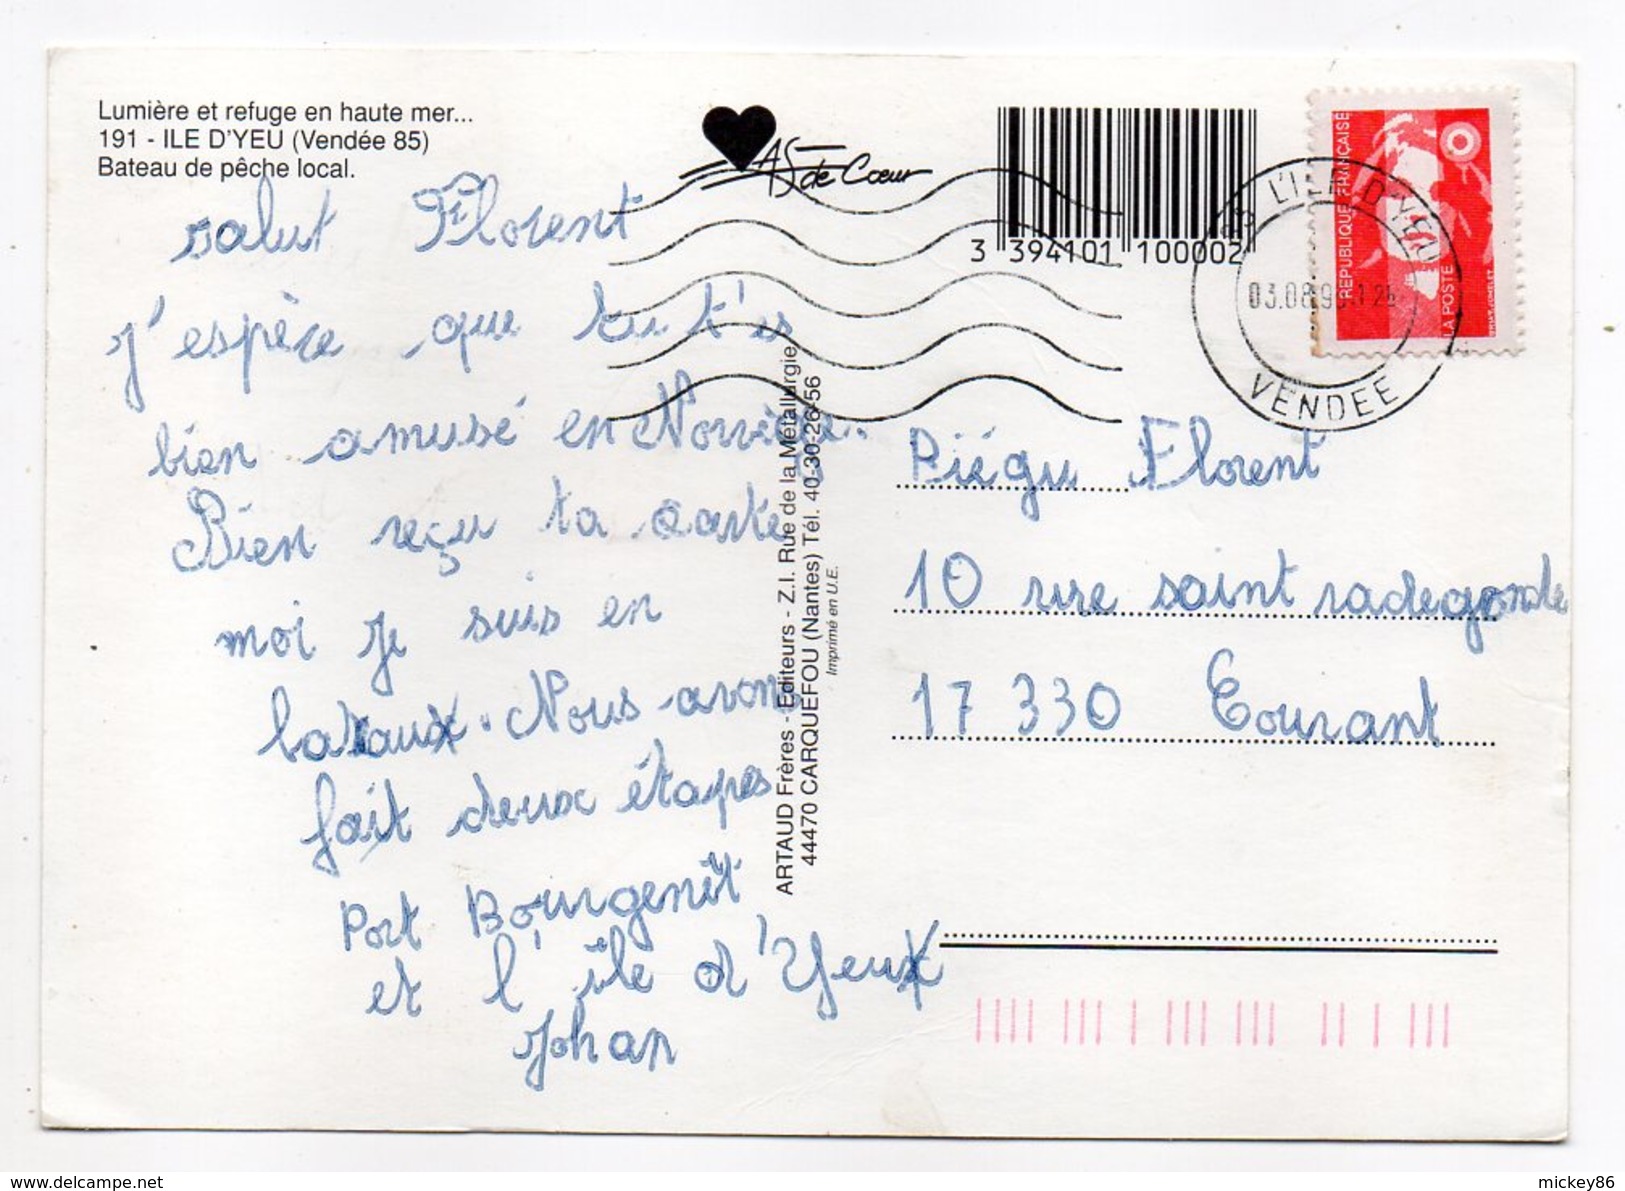 Lumière et refuge en haute mer...
191 - ILE D'YEU (Vendée 85)
Bateau de pêche local.
AS de Cœur
3 394101 100002
REPUBLIQUE FRANÇAISE
LA POSTE
L'ILE D'YEU
VENDEE
salut Florent
j'espère que tu t'es
bien amusé en Norvège.
Bien reçu ta carte
moi je suis en
bateaux. Nous avons
fait deux étapes
Port Bourgenît
et l'île d'Yeux
Johan
ARTAUD Frères - Editeurs - Z.I. Rue de la Métallurgie
44470 CARQUEFOU (Nantes) Tél. 40-30-26-56
Imprimé en U.E.
Piégu Florent
10 rue saint radegonde
17 330 Courant
mickey86